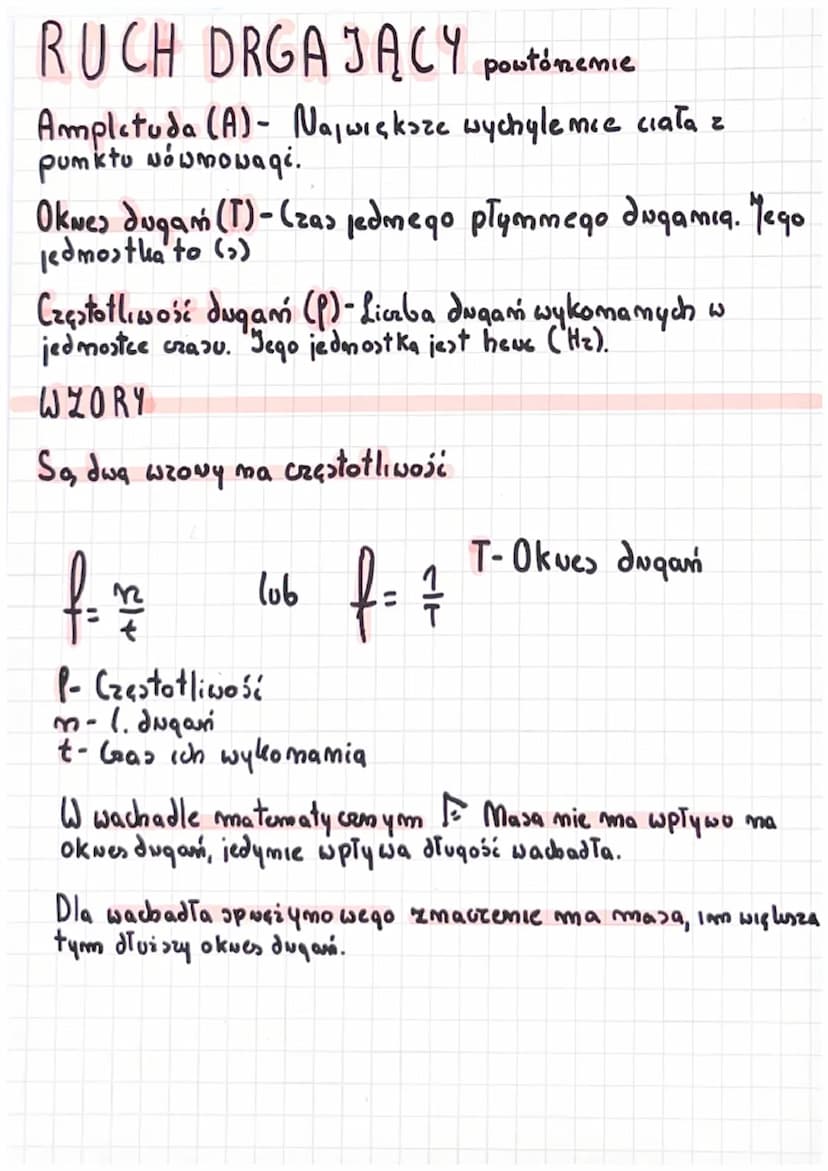 RUCH DRGAJĄCY powtórzenie
Amplituda (A) - Największe wychylenie ciała z
punktu równowagi.
Okres drgań (T) - Czas jednego płynnego drgania. Jego
jednostka to (s)
Częstotliwość drgań (f) - Liczba drgań wykonanych w
jednostce czasu. Jego jednostką jest herc (Hz).
WZORY
Są dwa wzory na częstotliwość
f = n/t lub f = 1/T T - Okres drgań
f - Częstotliwość
n - l. drgań
t - Czas ich wykonania
W wachadle matematycznym Masa nie ma wpływu na
okres drgań, jedynie wpływa długość wachadła.
Dla wachadła sprężynowego znaczenie ma masa, im większa
tym dłuższy okres drgań.